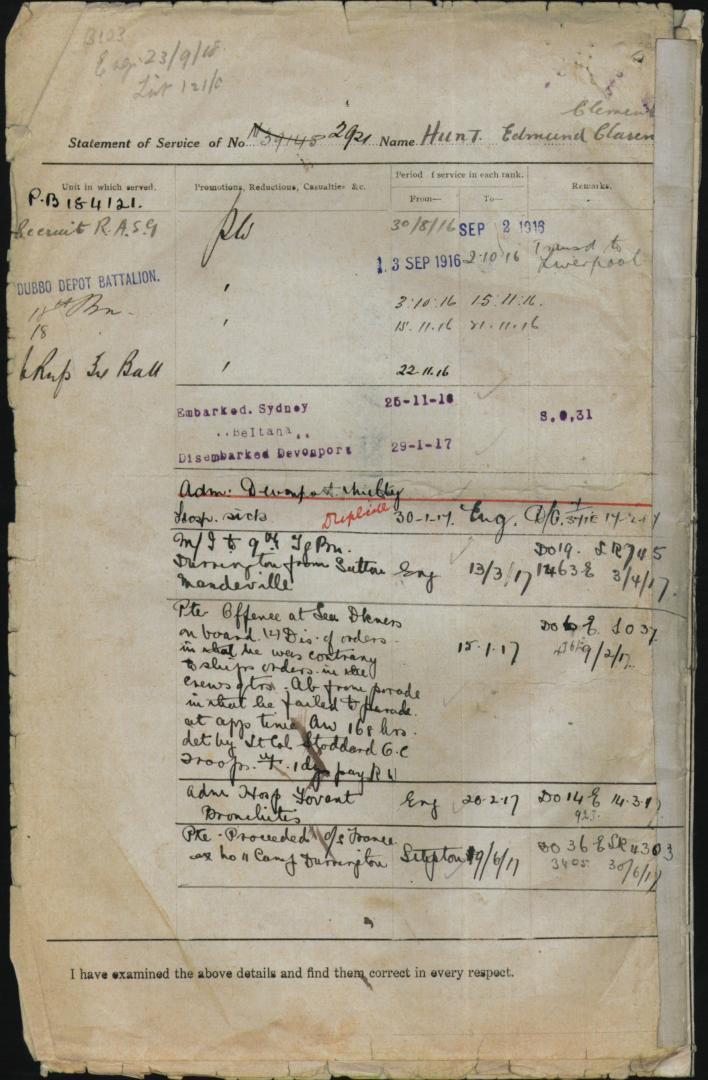 B103
Eng. 23/9/18
List 121/0
Clement
Statement of Service of No. N39145 2921 Name HUNT Edmund Claren
Unit in which served. Promotions, Reductions, Casualties &c. Period of service in each rank. Remarks.
From— To—
P.B 184121.
Recruit R.A.S.G Pte 30/8/16 SEP 2 1916
13 SEP 1916 2.10.16 Transd to Liverpool
DUBBO DEPOT BATTALION.
18th Bn. " 3.10.16 15.11.16.
18 " 15.11.16 21.11.16
6 Rnfs Batt " 22.11.16
Embarked. Sydney 25-11-16 S.O.31
..Beltana..
Disembarked Devonport 29-1-17
Adm: Devonport Military
Hosp. sick Duplicate 30-1-17. Eng. 14-2-17
M/I to 9th Tg Bn. DO19. SR745
Durrington from Sutton Eng 13/3/17 1463 E 3/4/17.
Mandeville
Pte Offence at Sea Dkners DO 6 E SO 37
on board (2) Dis. of orders 15.1.17 9/2/17.
in that he was contrary
to ships orders in the
crews qtrs. Ab from parade
in that he failed to parade
at app time Aw 168 hrs.
det by Lt Col Stoddard O.C
Troops. 1 dys pay RW
Adm Hosp Fovant Eng 20.2.17 DO 14 E 14.3.17
Bronchitis 923.
Pte Proceeded o/s France DO 36 E SR 4303
ex no 11 Camp Durrington 19/6/17 3405 30/6/17
I have examined the above details and find them correct in every respect.